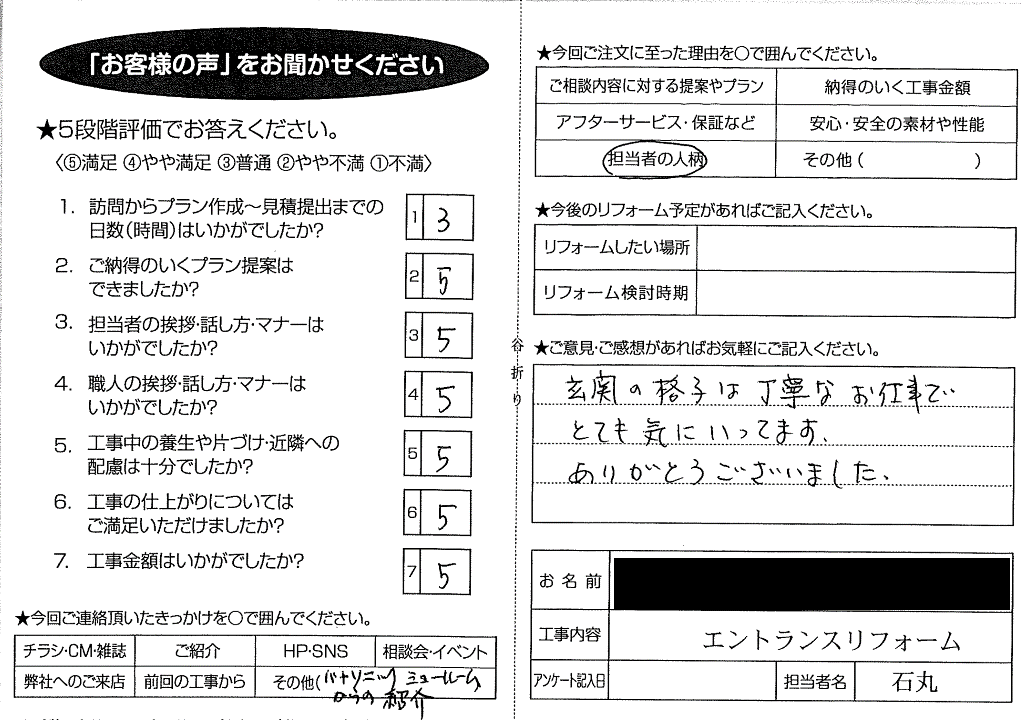 「お客様の声」をお聞かせください
★5段階評価でお答えください。
〈⑤満足 ④やや満足 ③普通 ②やや不満 ①不満〉
1. 訪問からプラン作成～見積提出までの
日数(時間)はいかがでしたか?
1 3
2. ご納得のいくプラン提案は
できましたか?
2 5
3. 担当者の挨拶・話し方・マナーは
いかがでしたか?
3 5
4. 職人の挨拶・話し方・マナーは
いかがでしたか?
4 5
5. 工事中の養生や片づけ・近隣への
配慮は十分でしたか?
5 5
6. 工事の仕上がりについては
ご満足いただけましたか?
6 5
7. 工事金額はいかがでしたか?
7 5
★今回ご連絡頂いたきっかけを○で囲んでください。
チラシ・CM・雑誌 ご紹介 HP・SNS 相談会・イベント
弊社へのご来店 前回の工事から その他(パナソニック ミュールーム
からの紹介
谷折り
★今回ご注文に至った理由を○で囲んでください。
ご相談内容に対する提案やプラン 納得のいく工事金額
アフターサービス・保証など 安心・安全の素材や性能
担当者の人柄 その他( )
★今後のリフォーム予定があればご記入ください。
リフォームしたい場所
リフォーム検討時期
★ご意見・ご感想があればお気軽にご記入ください。
玄関の格子は丁寧なお仕事で
とても気にいってます。
ありがとうございました。
お名前
工事内容 エントランスリフォーム
アンケート記入日 担当者名 石丸